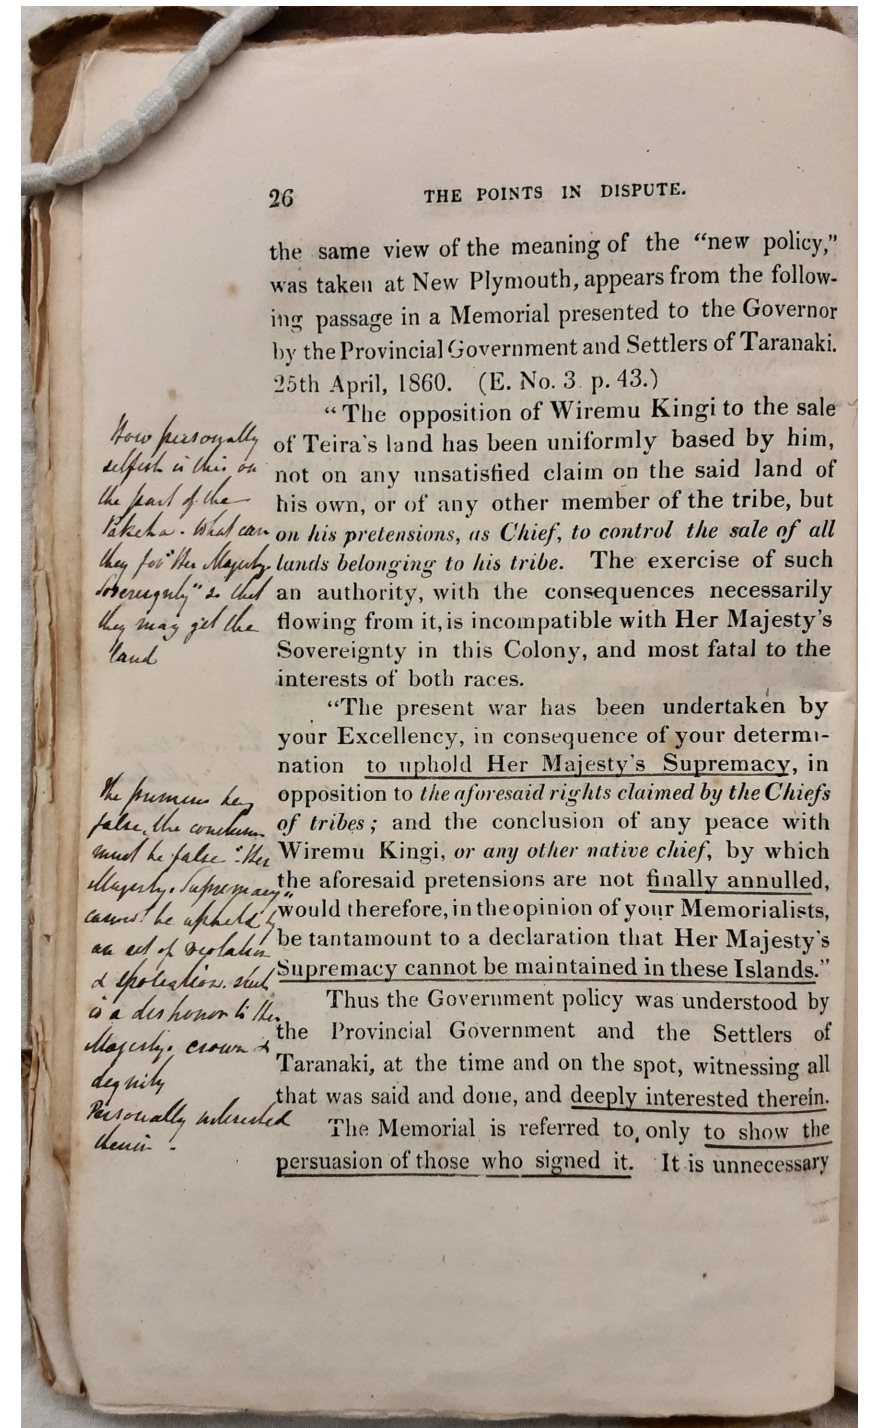 26 THE POINTS IN DISPUTE.
the same view of the meaning of the “new policy,”
was taken at New Plymouth, appears from the follow-
ing passage in a Memorial presented to the Governor
by the Provincial Government and Settlers of Taranaki.
25th April, 1860. (E. No. 3 p. 43.)
“The opposition of Wiremu Kingi to the sale
of Teira's land has been uniformly based by him,
not on any unsatisfied claim on the said land of
his own, or of any other member of the tribe, but
on his pretensions, as Chief, to control the sale of all
lands belonging to his tribe. The exercise of such
an authority, with the consequences necessarily
flowing from it, is incompatible with Her Majesty's
Sovereignty in this Colony, and most fatal to the
interests of both races.
“The present war has been undertaken by
your Excellency, in consequence of your determi-
nation to uphold Her Majesty's Supremacy, in
opposition to the aforesaid rights claimed by the Chiefs
of tribes; and the conclusion of any peace with
Wiremu Kingi, or any other native chief, by which
the aforesaid pretensions are not finally annulled,
would therefore, in the opinion of your Memorialists,
be tantamount to a declaration that Her Majesty's
Supremacy cannot be maintained in these Islands.”
Thus the Government policy was understood by
the Provincial Government and the Settlers of
Taranaki, at the time and on the spot, witnessing all
that was said and done, and deeply interested therein.
The Memorial is referred to, only to show the
persuasion of those who signed it. It is unnecessary
How personally
selfish is this on
the part of the
Pakeha. What care
they for "Her Majesty
Sovereignty" so that
they may get the
land
The premiss being
false, the conclusion
must be false. "Her
Majesty's Supremacy"
cannot be upheld by
an act of violation
& spoliation. such
is a dishonor to Her
Majesty's crown &
dignity
Personally interested
therein.